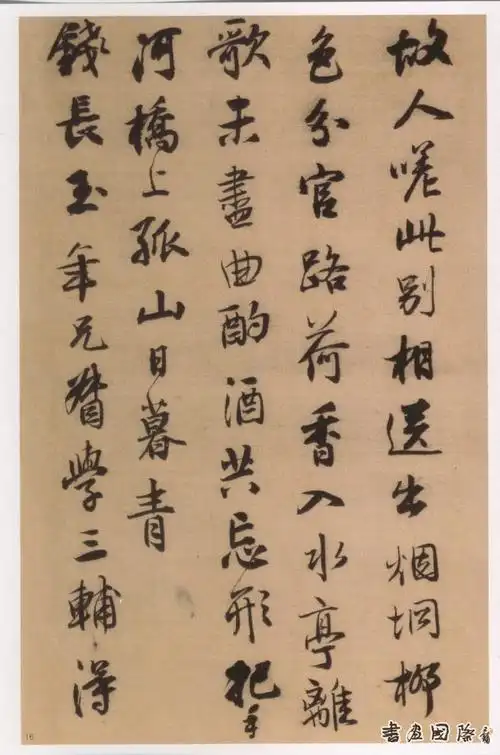 故人嗟此别相送出烟坰柳
色分官路荷香入水亭離
歌未盡曲酌酒共忘形把手
河橋上孤山日暮青
錢長玉年兄督學三輔得
16
書畫國際